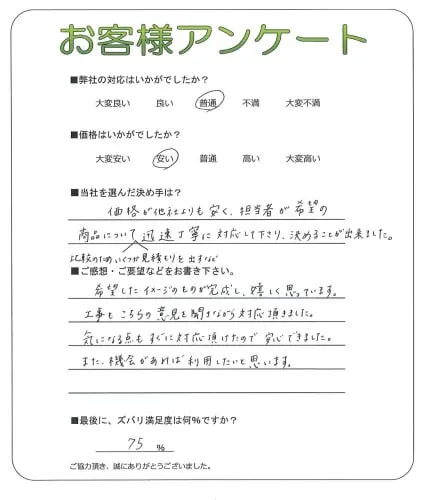 お客様アンケート
■弊社の対応はいかがでしたか？
大変良い　良い　普通　不満　大変不満
■価格はいかがでしたか？
大変安い　安い　普通　高い　大変高い
■当社を選んだ決め手は？
価格が他社よりも安く、担当者が希望の
商品について迅速丁寧に対応して下さり、決めることが出来ました。
比較のためいくつか見積もりを出すなど
■ご感想・ご要望などをお書き下さい。
希望したイメージのものが完成し、嬉しく思っています。
工事もこちらの意見を聞きながら対応頂きました。
気になる点もすぐに対応頂けたので安心できました。
また、機会があれば利用したいと思います。
■最後に、ズバリ満足度は何％ですか？
75 %
ご協力頂き、誠にありがとうございました。